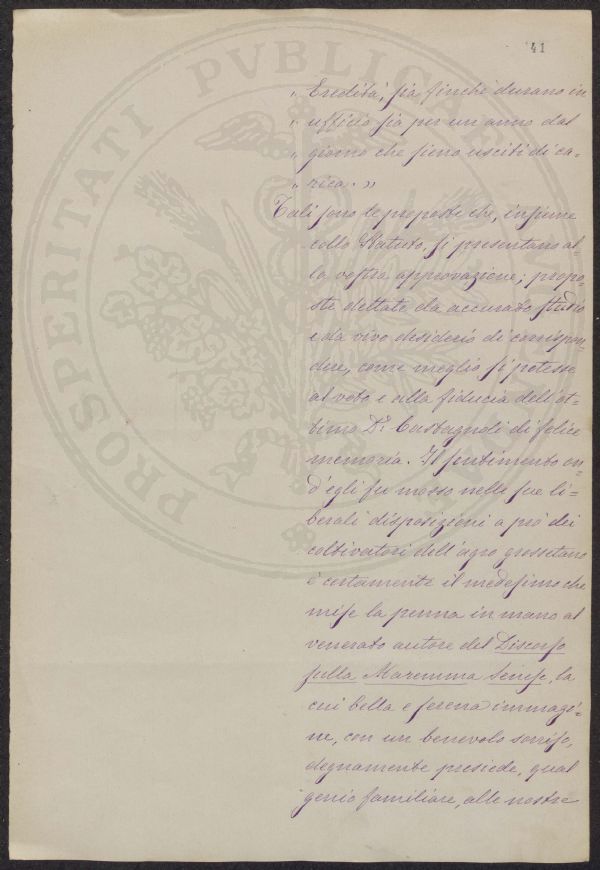 41
PROSPERITATI PVBLICAE
„ Eredità, sia finchè durano in
„ ufficio sia per un anno dal
„ giorno che sieno usciti di ca=
„ rica. »
Tali sono le proposte che, insieme
collo Statuto, si presentano al=
la vostra approvazione; propo=
ste dettate da accurato studio
e da vivo desiderio di corrispon=
dere, come meglio si potesse
al voto e alla fiducia dell'ot=
timo Dr. Castagnoli di felice
memoria. Il sentimento on=
d'egli fu mosso nelle sue li=
berali disposizioni a prò dei
coltivatori dell'agro grossetano
è certamente il medesimo che
mise la penna in mano al
venerato autore del Discorso
sulla Maremma Senese, la
cui bella e serena immagi=
ne, con un benevolo sorriso,
degnamente presiede, qual
genio familiare, alle nostre